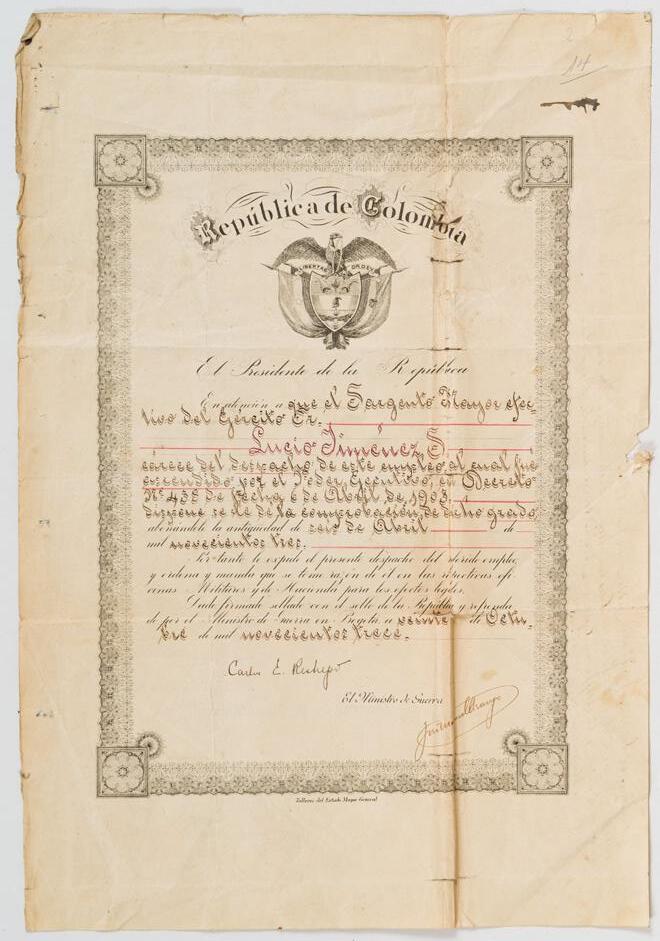 14
República de Colombia
LIBERTAD ORDEN
El Presidente de la República
En atención a que el Sargento Mayor efec-
tivo del Ejército Sr.
Lucio Jiménez S.
carece del despacho de este empleo, al cual fué
ascendido por el Poder Ejecutivo, en Decreto
Nº 438 de fecha 6 de Abril de 1903
dispone se le dé la comprobación de dicho grado,
abonándole la antigüedad de seis de Abril de
mil novecientos tres.
Por tanto le expide el presente despacho del referido empleo,
y ordena y manda que se tome razón de él en las respectivas ofi
cinas Militares y de Hacienda para los efectos legales.
Dado firmado sellado con el sello de la República y refrenda
do por el Ministro de Guerra en Bogotá, a veinte de Octu-
bre de mil novecientos trece.
Carlos E. Restrepo
El Ministro de Guerra
Talleres del Estado Mayor General